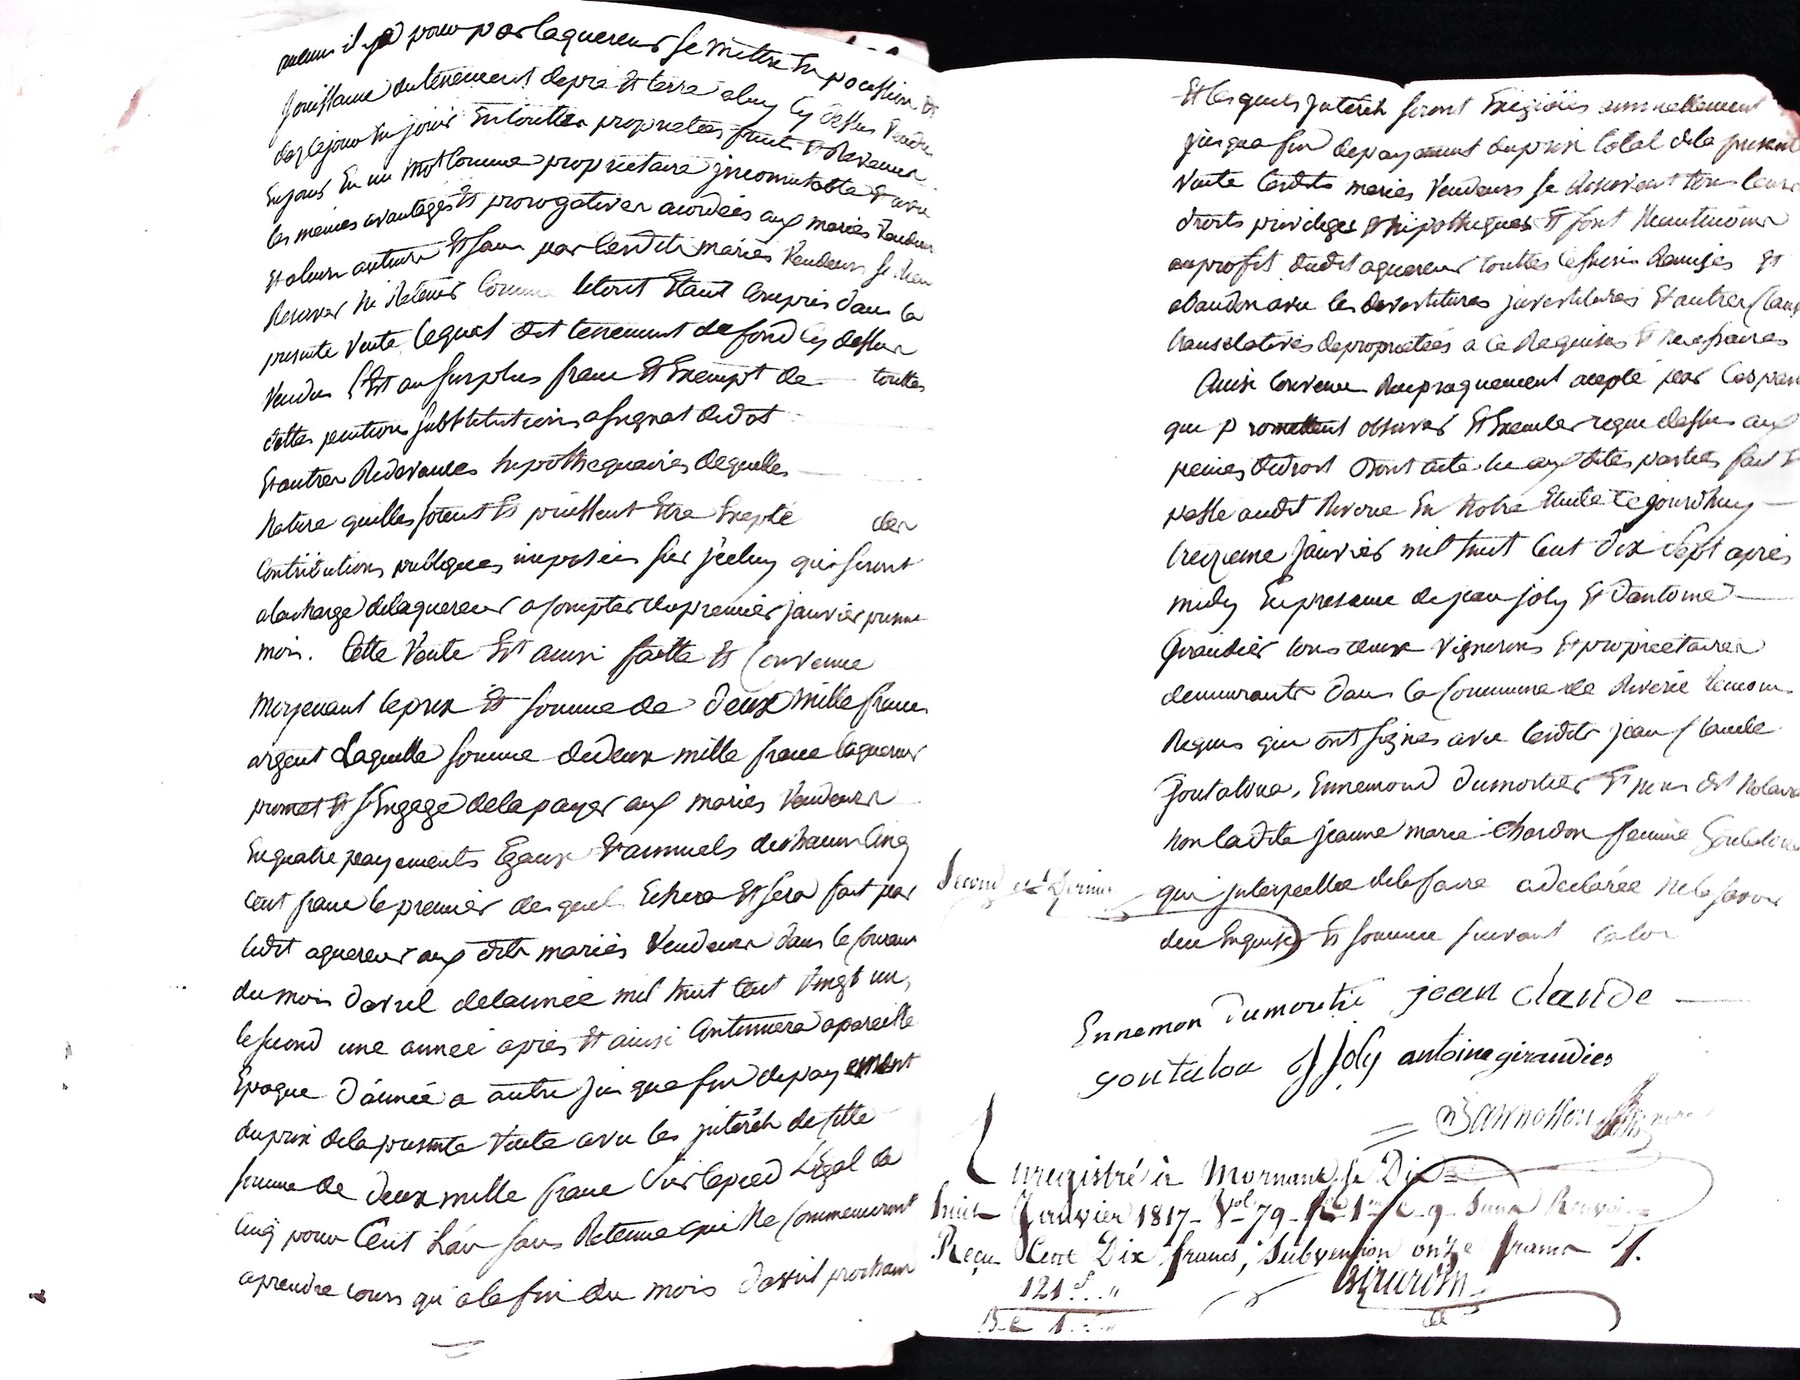 aucuns il y a pour par laquereur se mettre En pocession Et
Jouissance du tenement de pré Et terre a luy Cy dessus Vendu
dez ce jour En jouir En toutte propriettées fruits Et Revenus
En jouir En un mot Comme proprietaire jncomutable Et avec
les memes avantages Et prerogatives acordées aux mariés Vendeurs
Et a leurs auteurs Et sans par lesdits mariés Vendeurs se Rien
Reserver Ni Retenir Comme letout Etant Compris dans la
presente Vente lequel dit tennement de fond Cy dessus
Vendu Est au surplus franc Et Exempt de touttes
dettes pentions substitutions assignat de dot
Et autres Redevances hypothequaires de quelles
Nature quelles soient Et puissent Etre Exepté des
Contributions publiques imposées sur jceluy qui seront
a la charge de laquereur a compter du premier janvier present
mois. Cette Vente Est ainsi faitte Et Convenue
moyenant le prix Et somme de deux mille francs
argent Laquelle somme de deux mille franc laquereur
promet Et s'Engage de la payer aux mariés Vendeurs
En quatre payements Egaux Et annuels de chacun Cinq
Cent franc le premier des quels Echera Et sera fait par
ledit aquereur aux dits mariés Vendeurs dans le Courant
du mois davril de lannée mil huit Cent Vingt un,
le second une année après Et ainsi Continuera a pareille
Epoque d'année a autre jusqua fin de payement
du prix de la presente Vente avec les jnterêts de cette
somme de deux mille franc sur le pied Légal de
Cinq pour Cent L'an sans Retenue qui Ne Commenceront
a prendre cours qu'a la fin du mois d'avril prochain
Et lesquels jnterêts seront Exigibles annuellement
jusqua fin de payement du prix total de la presente
Vente lesdits mariés Vendeurs se Reservent tous leurs
droits privileges Et hipotheques Et font Neantmoins
au profit dudit aquereur touttes Cessions Remises Et
abandon avec les devestitures jnvestitures Et autres Clauses
translatives de proprietées a Ce Requises Et Necessaires
Ainsi Convenu Reciproquement acepté par Les parties
qui promettent observer Et Executer ce que dessus aux
peines de droit dont acte lu aux dites parties fait Et
passé audit Riverie En Notre Etude Ce jourdhuy
treizieme janvier mil huit Cent dix Sept après
midy En presence de jean joly Et d'antoine
Giraudier tous deux Vignerons Et proprietaires
demeurants dans la Commune de Riverie temoins
Requis qui ont signés avec lesdits jean Claude
Goutalua, Ennemond dumortier Et nous dit Notaire
Non ladite jeanne marie Chardon femme Goutalua
Second et Dernier
qui jnterpellée de le faire a declarée Ne le savoir
deu Enquise Et sommée suivant la loi
Ennemon Dumortié jean claude
goutalua J Joly antoine giraudier
Enregistré à Mornant, le Dix
huit Janvier 1817 Vol 79 fo 1 C 9 Sans Renvoi
Reçu Cent Dix francs, Subvention onze francs
121 f. "
Girardin